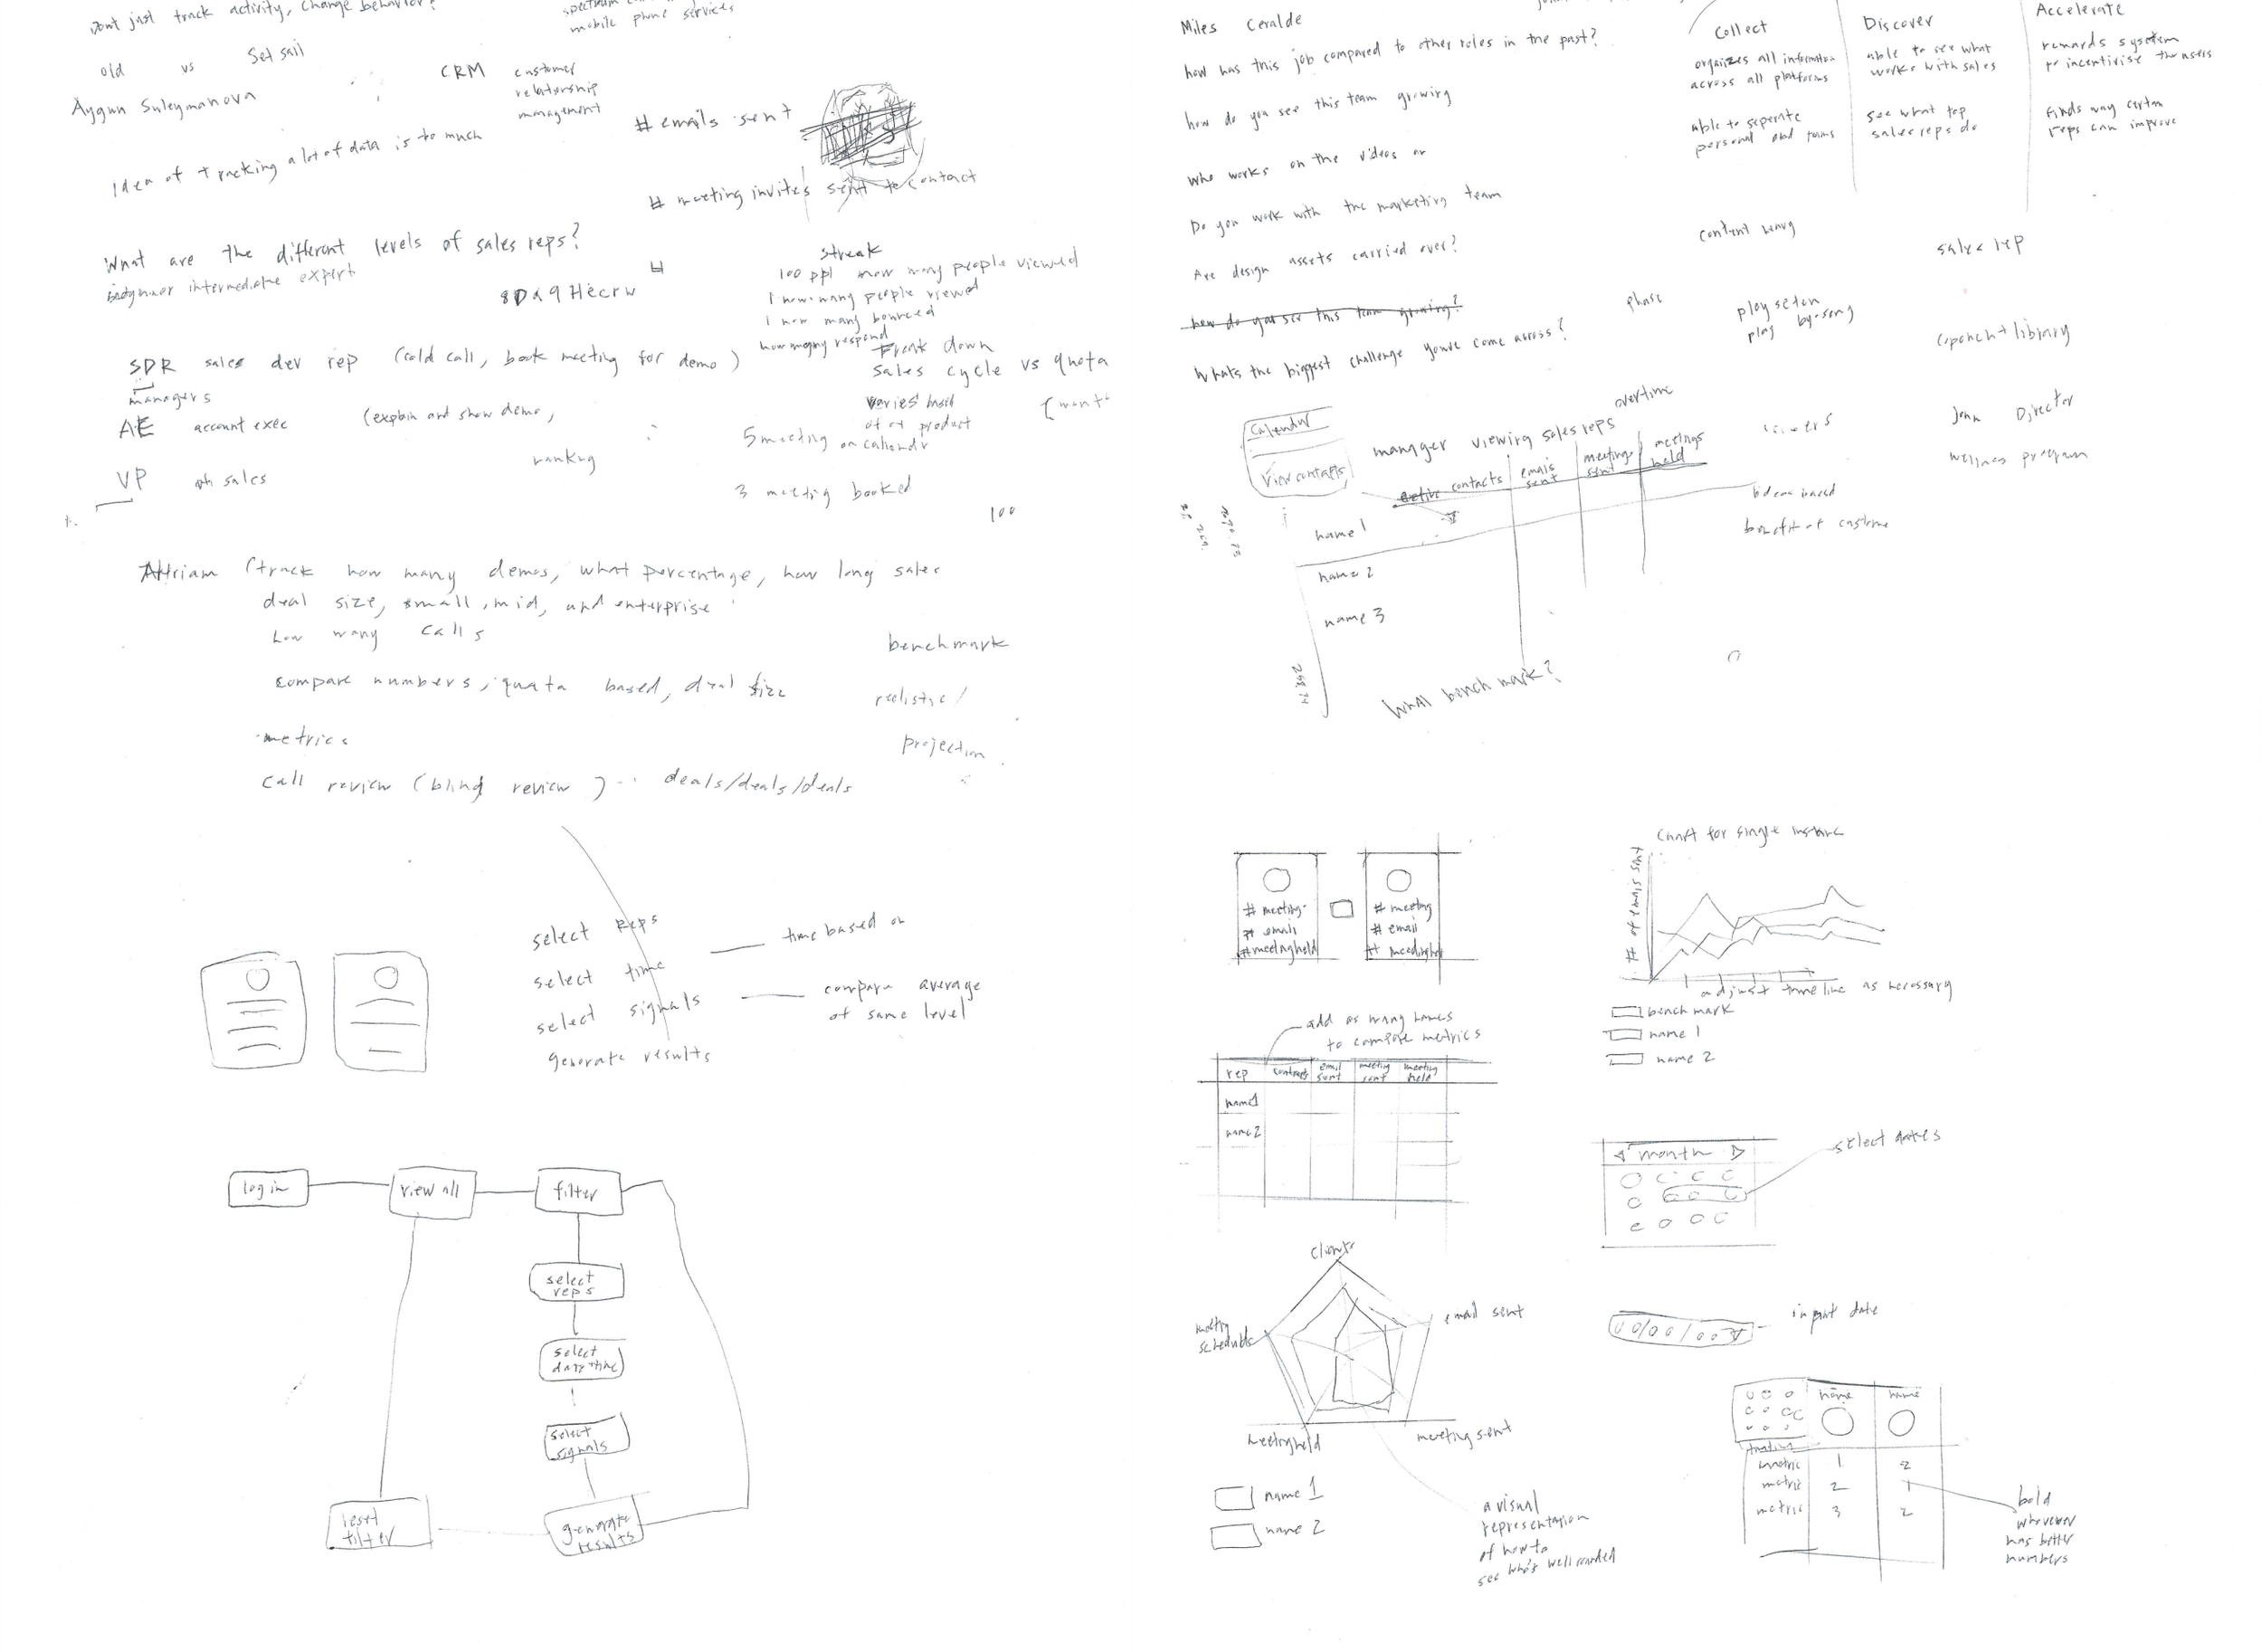 Dont just track activity, change behavior?
mobile phone services
old vs Set sail
Aygun Suleymanova
CRM customer
relationship
management
Idea of tracking a lot of data is to much
# emails sent
# meeting invites sent to contact
What are the different levels of sales reps?
intermediate expert
streak
100 ppl how many people viewed
1 how many people viewed
1 how many bounced
how many respond
SDR sales dev rep (cold call, book meeting for demo)
managers
break down
sales cycle vs quota
varies based
product
AE account exec (explain and show demo,
VP of sales
ranking
5 meeting on
3 meeting booked
100
Attriam (track how many demos, what percentage, how long sales
deal size, small, mid, and enterprise
how many calls
compare numbers, quata based, deal size
metrics
call review (blind review) deals/deals/deals
benchmark
realistic/
projection
select Reps
select time
select signals
generate results
time based on
compare average
of same level
log in
view all
filter
select
reps
select
date time
select
signals
generate
results
reset
filter
Miles Ceralde
how has this job compared to other roles in the past?
how do you see this team growing
who works on the videos or
Do you work with the marketing team
Are design assets carried over?
how do you see this team growing?
Whats the biggest challenge youve come across?
Collect
organizes all information
across all platforms
able to seperate
personal and
Discover
able to see what
works with sales
see what top
sales reps do
Accelerate
rewards sysetem
to incentivise the users
Finds way certan
reps can improve
content
sales rep
phase
library
John Director
wellness program
benefit of
Calendar
View contacts
manager viewing sales reps
overtime
active contacts
emails
sent
meetings
sent
meetings
held
name 1
name 2
name 3
What bench mark?
# meeting
# email
# meeting held
# meeting
# email
# meeting held
Chart for single instance
# of emails sent
adjust timeline as necessary
bench mark
name 1
name 2
add as many names
to compare metrics
rep
contacts
email
sent
meeting
sent
meeting
held
name 1
name 2
month
select dates
input date
00/00/00
clients
email sent
meeting sent
meeting held
meeting
schedule
name 1
name 2
a visual
representation
of how to
see who's well rounded
name name
metric 1 2
metric 2 1
metric 3 2
bold
whoever
has better
numbers